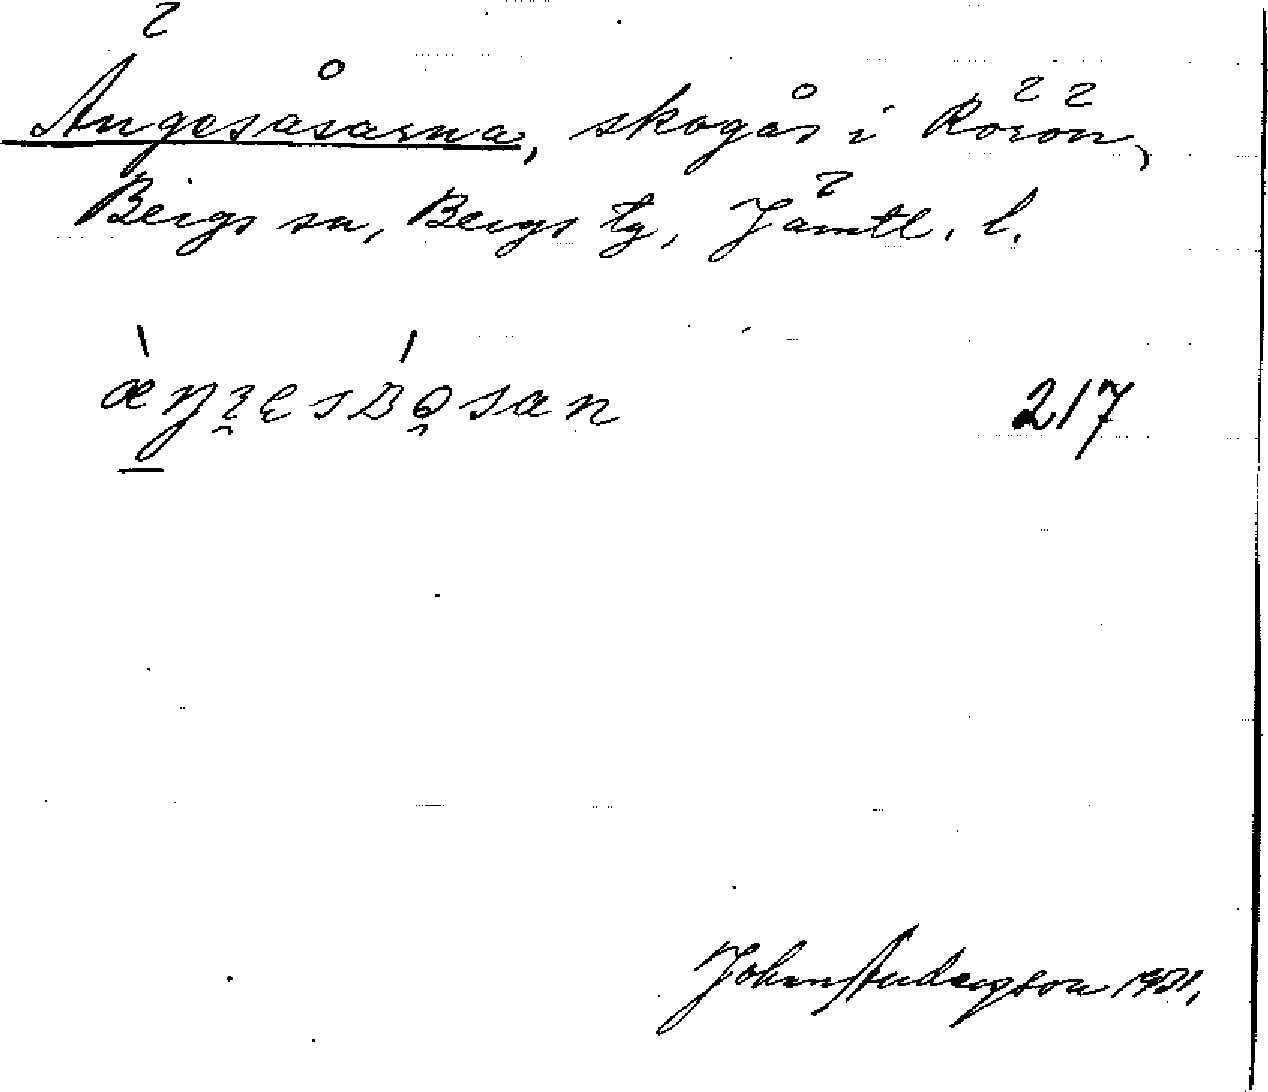 Ängesåsarna, skogås i Rörön,
Bergs sn, Bergs tg, Jämtl. l.
217
John Andersson 1931.